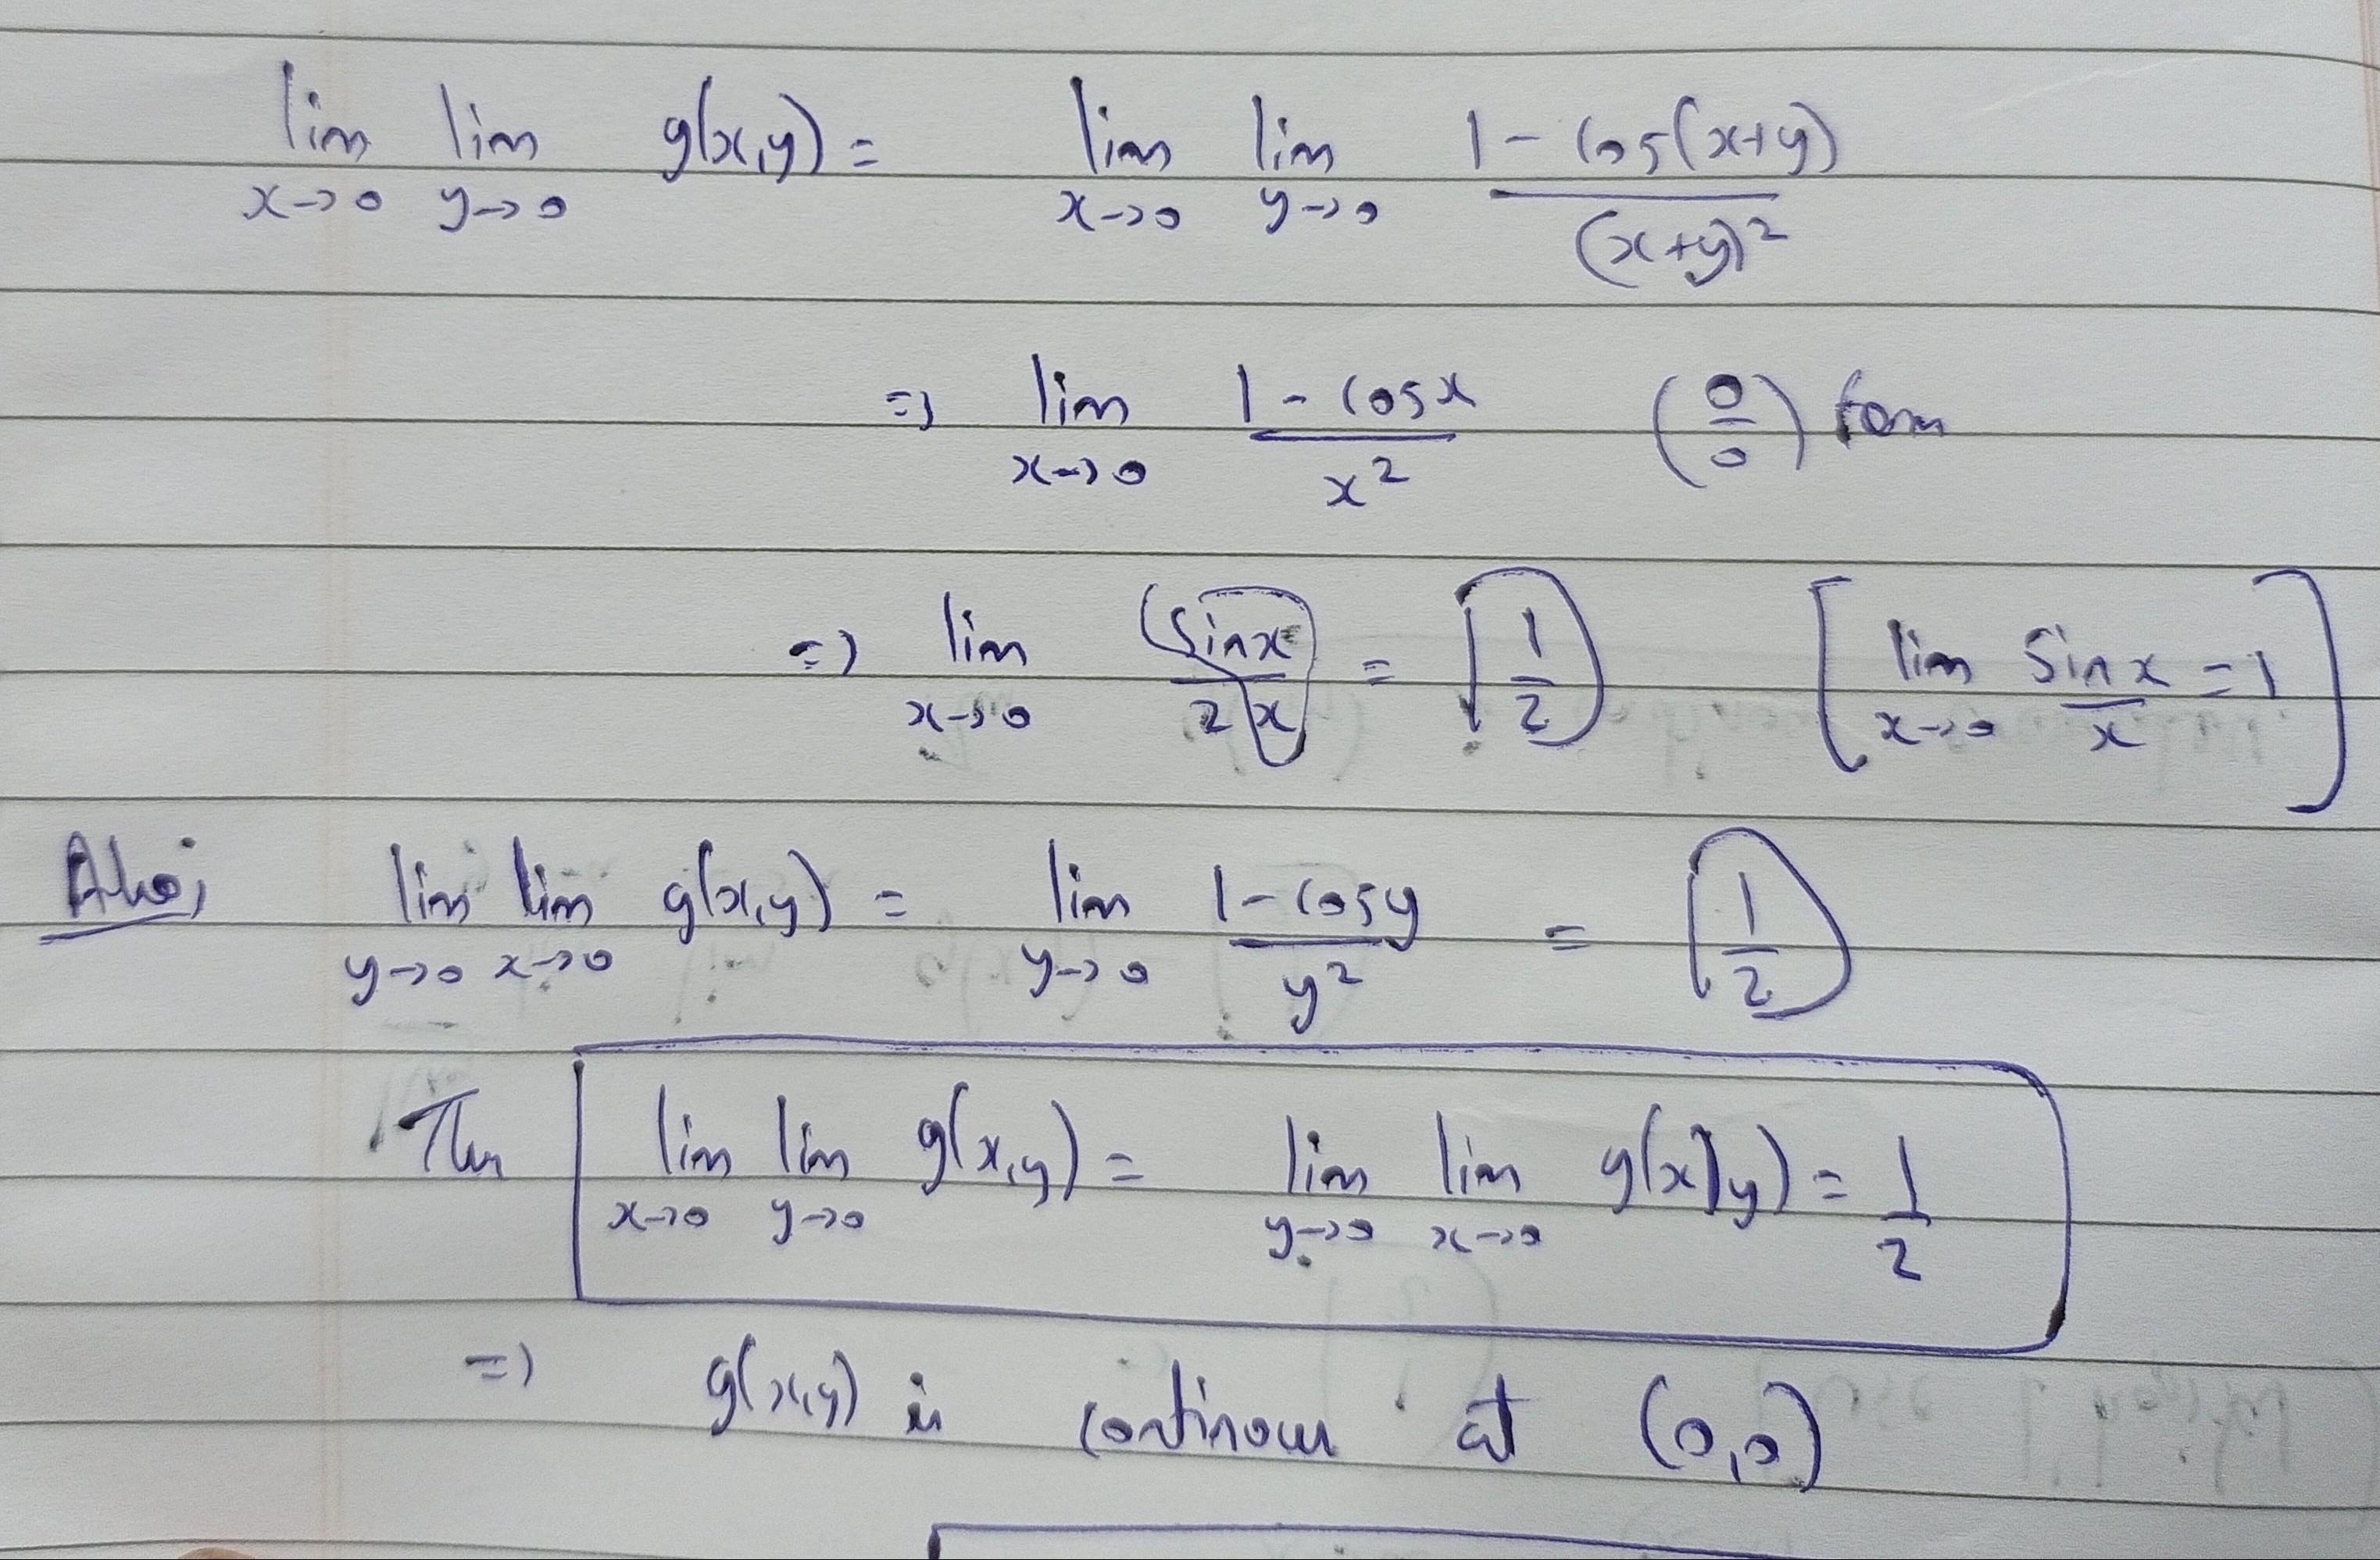 lim x→0 lim y→0 g(x,y) = lim x→0 lim y→0 1 - cos(x+y) / (x+y)²
=> lim x→0 1 - cosx / x² (0/0) form
=> lim x→0 sinx / 2x = 1/2 [ lim x→0 sinx / x = 1 ]
Also, lim y→0 lim x→0 g(x,y) = lim y→0 1 - cosy / y² = 1/2
Thus lim x→0 lim y→0 g(x,y) = lim y→0 lim x→0 g(x,y) = 1/2
=> g(x,y) is continous at (0,0)